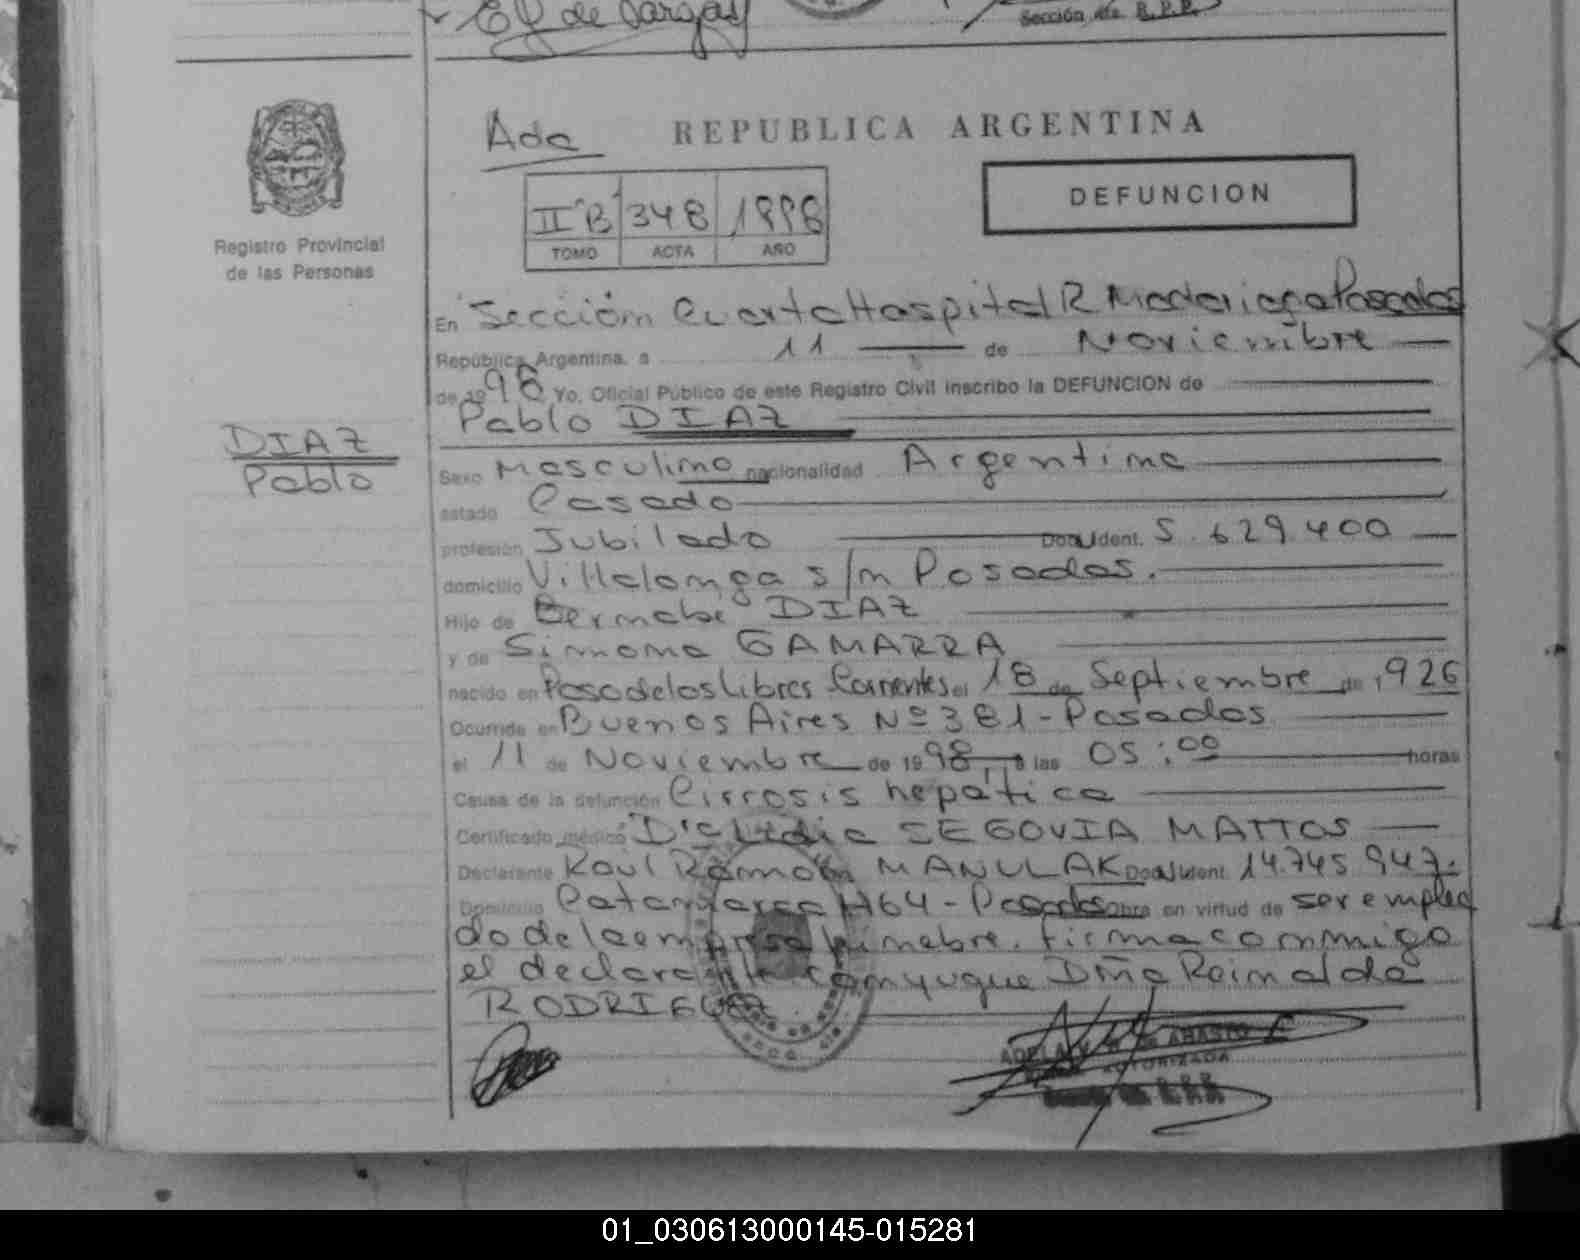 E Q de Vargas
Sección 4ta R.P.P.
Ada
REPUBLICA ARGENTINA
II°B 348 1998
TOMO ACTA AÑO
DEFUNCION
Registro Provincial
de las Personas
En Sección Cuarta Hospital R Madariaga Posadas
República Argentina, a 11 de Noviembre
de 1998 Yo, Oficial Público de este Registro Civil inscribo la DEFUNCION de
Pablo DIAZ
DIAZ
Pablo
Sexo Masculino nacionalidad Argentina
estado Casado
profesión Jubilado Doc. Ident. 5.629.400
domicilio Villalonga s/n Posadas.
Hijo de Bernabe DIAZ
y de Simona GAMARRA
nacido en Pasodelos Libres Corrientes el 18 de Septiembre de 1926
Ocurrida en Buenos Aires Nº 381 - Posadas
el 11 de Noviembre de 1998, a las 05:00 horas
Causa de la defunción Cirrosis hepática
Certificado médico Dra SEGOVIA MATTOS
Declarante Raúl Ramón MANULAK Doc. Ident. 14.745.947.
Domicilio Catamarca 1164 - Posadas obra en virtud de ser emplea
do de la empresa fúnebre. firma conmigo
el declarante. conyugue Dña Reinalda
RODRIGUEZ
ABASTO
AUTORIZADA
R.P.P.
01_030613000145-015281